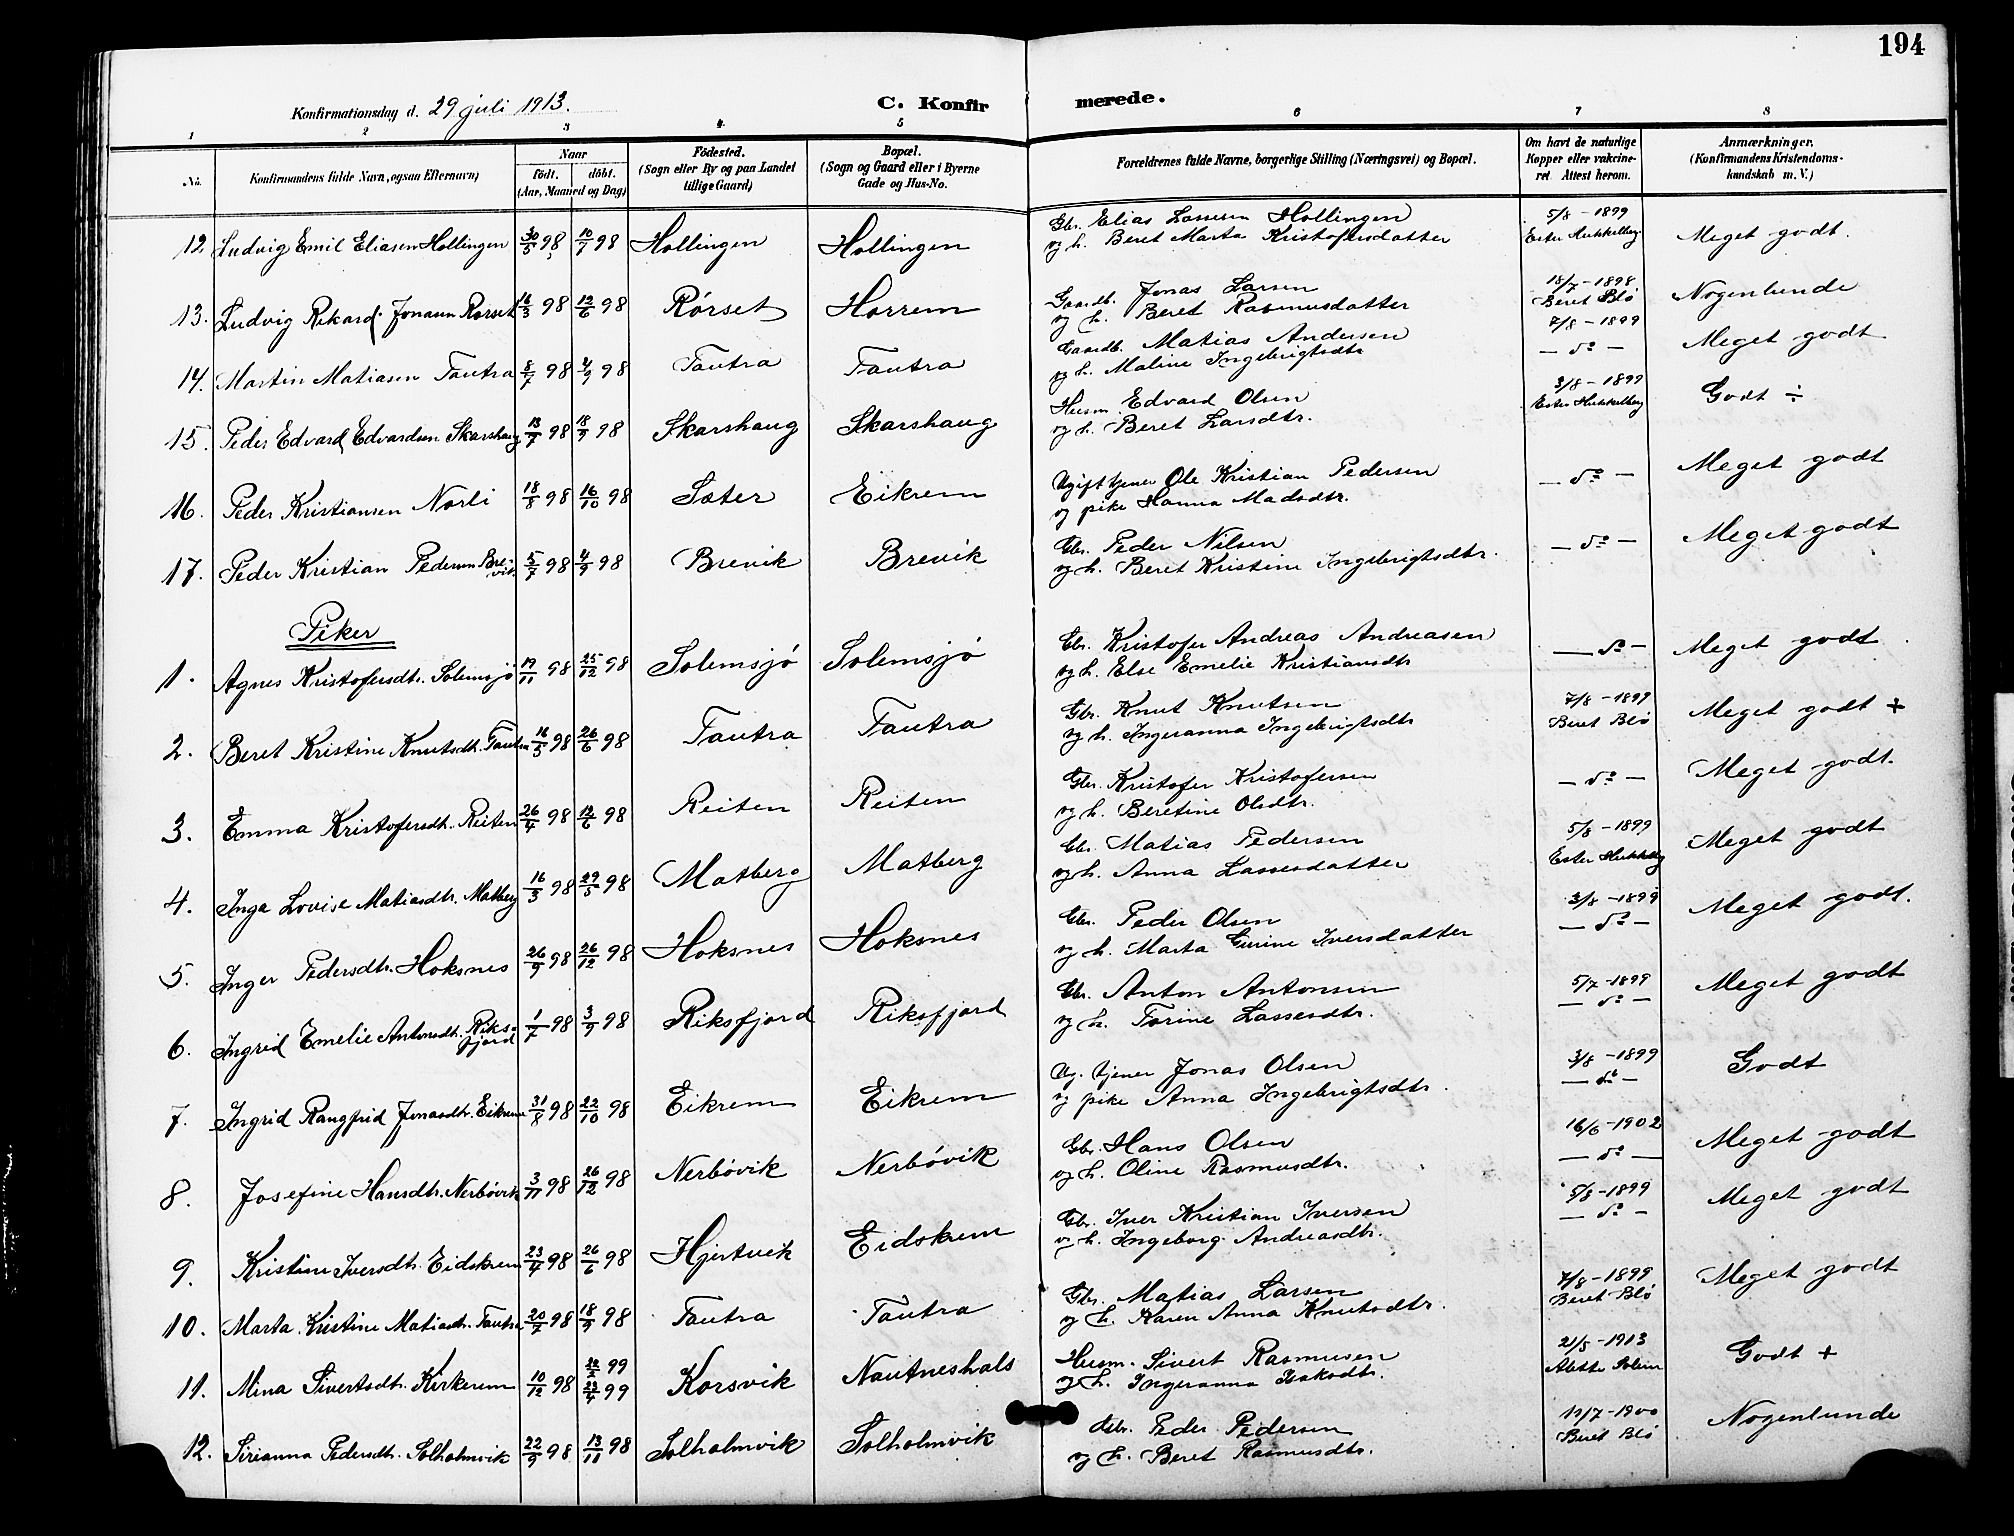 194
Konfirmationsdag d. 29 juli 1913.
C. Konfirmerede.
1 2 3 4. 5 6 7 8
No. Konfirmandens fulde Navn, ogsaa Efternavn) Naar født. døbt. (Aar, Maaned og Dag) Fødested. (Sogn eller By og paa Landet tillige Gaard) Bopæl. (Sogn og Gaard eller i Byerne Gade og Hus-No. Forældrenes fulde Navne, borgerlige Stilling (Næringsvei) og Bopæl. Om havt de naturlige Kopper eller vakcineret. Attest herom. Anmærkninger. (Konfirmandens Kristendomskundskab m. V.)
12. Ludvig Emil Eliasen Hollingen 30/5 98 10/7 98 Hollingen Hollingen Gbr. Elias Lassesen Hollingen 5/8 - 1899 Meget godt.
og h. Beret Marta Kristofersdatter Ester Hukkelberg
13. Ludvig Rikard Jonasen Rørset 16/3 98 12/6 98 Rørset Horrem Gaardb. Jonas Larsen 18/7 - 1898 Nogenlunde
og h. Beret Rasmusdatter Beret Blø
14. Martin Matiasen Tautra 8/7 98 4/9 98 Tautra Tautra Gaardb. Matias Andersen 7/8 - 1899 Meget godt
og h. Maline Ingebrigtsdtr - do -
15. Peder Edvard Edvardsen Skarshaug 13/7 98 18/9 98 Skarshaug Skarshaug Husm. Edvard Olsen 3/8 - 1899 Godt ÷
og h. Beret Larsdtr. Ester Hukkelberg
16. Peder Kristiansen Norli 18/8 98 16/10 98 Sæter Eikrem Ugift tjener Ole Kristian Pedersen - do - Meget godt
og pike Hanna Madsdtr.
17. Peder Kristian Pedersen Brevik 5/7 98 4/9 98 Brevik Brevik Gbr. Peder Nilsen - do - Meget godt
og h. Beret Kristine Ingebrigtsdtr.
Piker
1. Agnes Kristofersdtr. Solemsjø 19/11 98 25/12 98 Solemsjø Solemsjø Gbr. Kristofer Andreas Andreasen - do - Meget godt
og h. Else Emelie Kristiansdtr
2. Beret Kristine Knutsdtr. Tautra 16/5 98 26/6 98 Tautra Tautra Gbr. Knut Knutsen 7/8 - 1899 Meget godt +
og h. Ingeranna Ingebrigtsdtr Beret Blø
3. Emma Kristofersdtr. Reiten 26/4 98 12/6 98 Reiten Reiten Gbr. Kristofer Kristofersen - do - Meget godt.
og h. Beretine Olsdtr.
4. Inga Lovise Matiasdtr. Matberg 16/3 98 29/5 98 Matberg Matberg Gbr. Matias Pedersen 5/8 - 1899 Meget godt
og h. Anna Lassesdatter Ester Hukkelberg
5. Inger Pedersdtr. Hoksnes 26/9 98 26/12 98 Hoksnes Hoksnes Gbr. Peder Olsen 3/8 - 1899 Meget godt.
og h. Marta Gurine Iversdatter - do -
6. Ingrid Emelie Antonsdtr. Riksfjord 1/7 98 3/9 98 Riksfjord Riksfjord Gbr. Anton Antonsen 5/7 - 1899 Meget godt
og h. Torine Lassesdtr. - do -
7. Ingrid Rangfrid Jonasdtr. Eikrem 31/8 98 22/10 98 Eikrem Eikrem Ug. tjener Jonas Olsen 3/8 - 1899 Godt
og pike Anna Ingebrigtsdtr. - do -
8. Josefine Hansdtr. Nerbøvik 3/11 98 26/12 98 Nerbøvik Nerbøvik Gbr. Hans Olsen 16/6 - 1902 Meget godt
og h. Oline Rasmusdtr. - do -
9. Kristine Iversdtr. Eidskrem 23/4 98 26/6 98 Hjertvik Eidskrem Gbr. Iver Kristian Iversen 5/8 - 1899 Meget godt
og h. Ingeborg Andreasdtr. - do -
10. Marta Kristine Matiasdtr. Tautra 20/7 98 18/9 98 Tautra Tautra Gbr. Matias Larsen 7/8 - 1899 Meget godt
og h. Karen Anna Knutsdtr. Beret Blø
11. Mina Sivertsdtr. Kirkerem 10/12 98 99 99 Korsvik Nautneshals Husm. Sivert Rasmusen 21/5 - 1913 Godt +
og h. Ingeranna Isaksdtr. Solem
12. Sirianna Pedersdtr. Solholmvik 22/9 98 13/11 98 Solholmvik Solholmvik Gbr. Peder Pedersen 11/7 - 1900 Nogenlunde
og h. Beret Rasmusdtr. Beret Blø